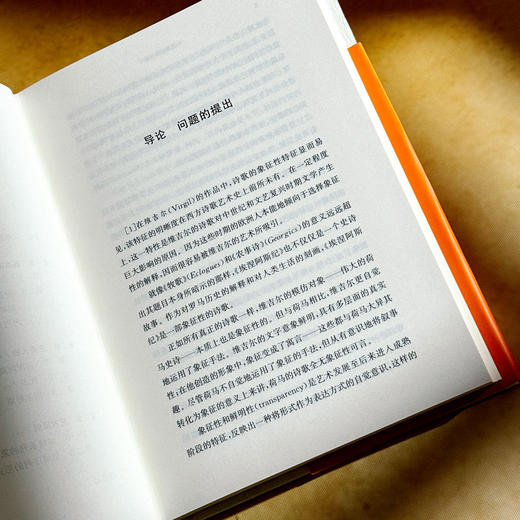 导论　问题的提出
[1]在维吉尔(Virgil)的作品中,诗歌的象征性特征显而易
见,该特征的明晰度在西方诗歌艺术史上前所未有。在一定程度
上,这一特性是维吉尔的诗歌对中世纪和文艺复兴时期文学产生
巨大影响的原因,因为这些时期的欧洲人本能地倾向于选择象征
性的解释,因而很容易被维吉尔的艺术所吸引。
就像《牧歌》(Eclogues)和《农事诗》(Georgics)的意义远远超
出其题目本身所暗示的那样,《埃涅阿斯纪》也不仅仅是一个史诗
故事。作为对罗马历史的解释和对人类生活的刻画,《埃涅阿斯
纪》是一部象征性的诗歌。
正如所有真正的诗歌一样,维吉尔的模仿对象——伟大的荷
马史诗——本质上也是象征性的。但与荷马相比,维吉尔更自觉
地运用了象征手法。维吉尔的文字意象鲜明,具有多层面的真实
性;在他创造的形象中,象征变成了寓言——这些都与荷马大异其
趣。尽管荷马不自觉地运用了象征的手法,但从有意识地将叙事
转化为象征的意义上来讲,荷马的诗歌全无象征性可言。
象征性和鲜明性(transparency)是艺术发展至后来进入成熟
阶段的特征,反映出一种将形式作为表达方式的自觉意识,这样的